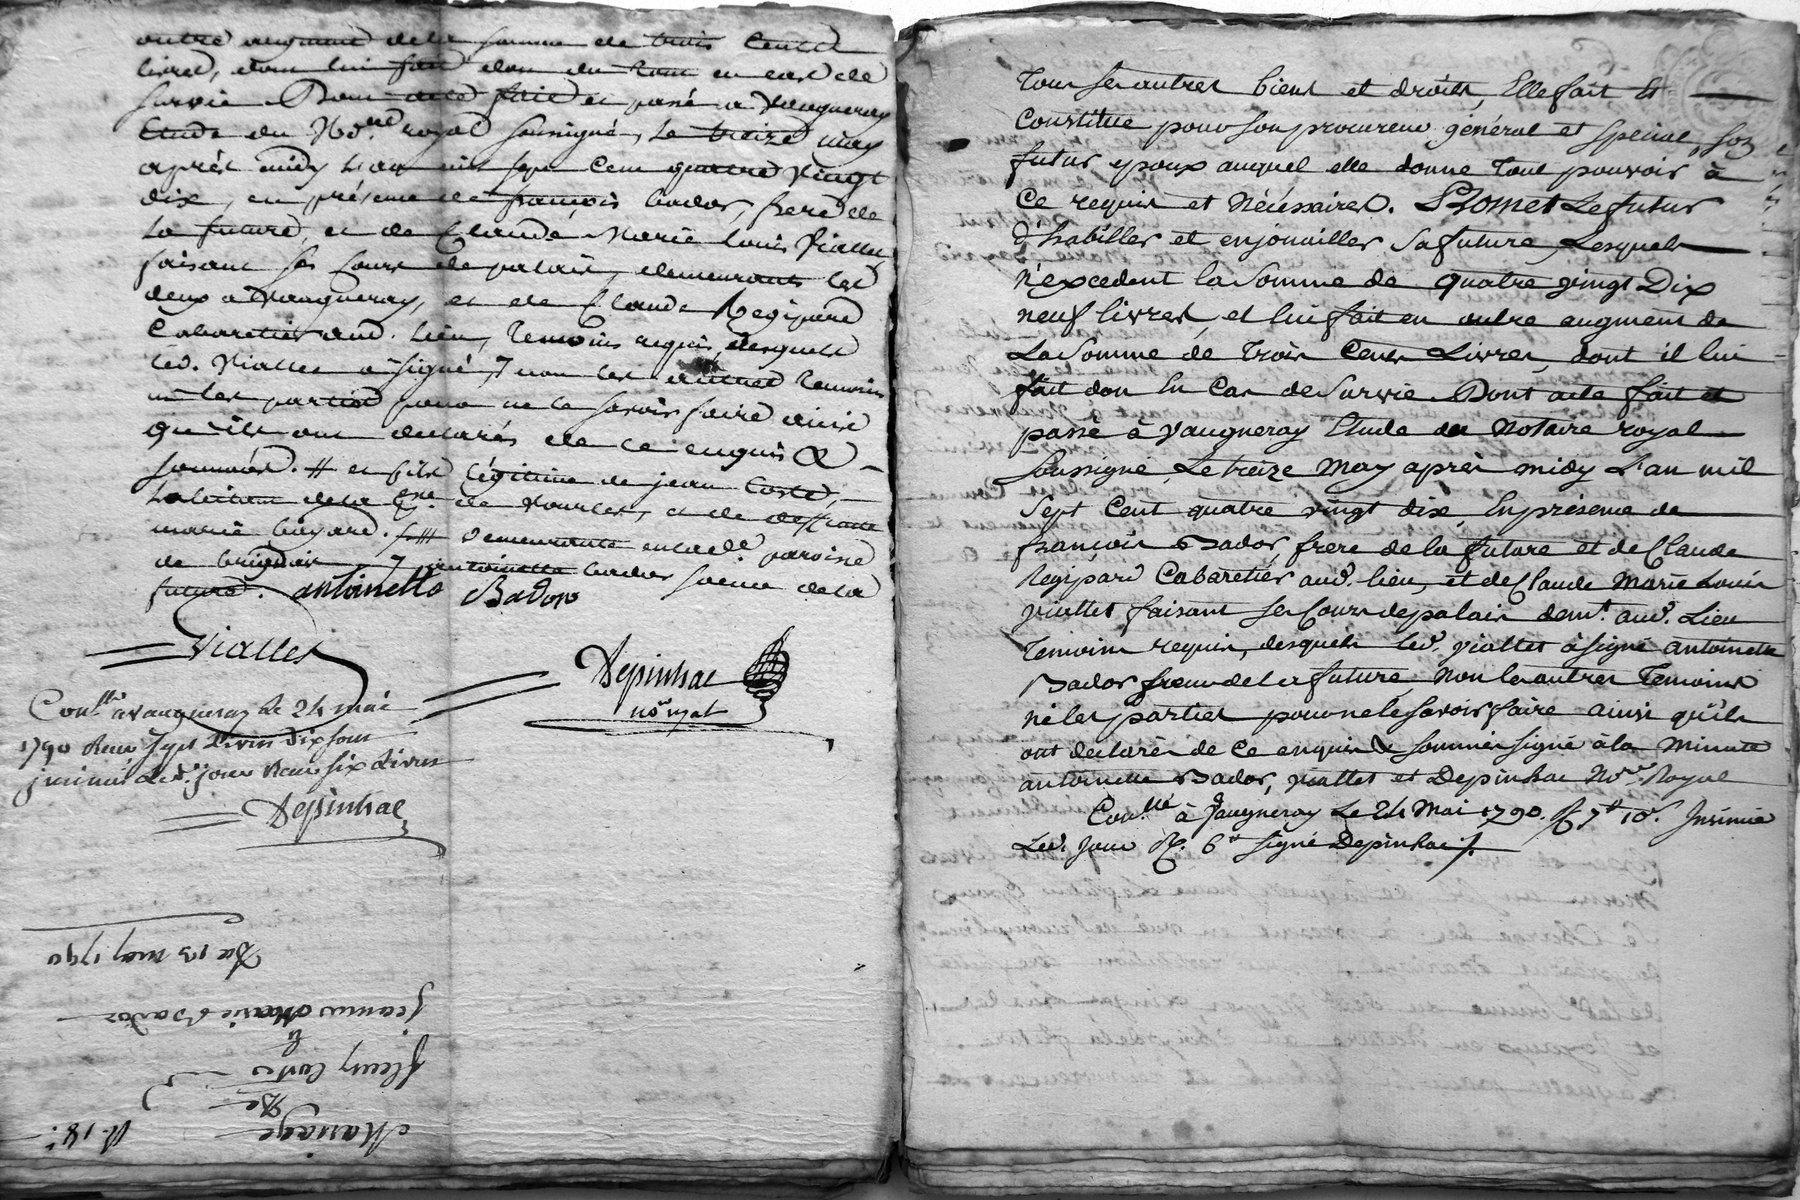 outre augment de la somme de trois Cents
livres, dont lui fait don du tout en cas de
survie. Dont acte fait et passé a Vaugneray
Etude du No.re royal soussigné, le treize may
après midy l'an mil sept Cent quatre vingt
dix, en présence de françois bador, frere de
la future, et de Claude Marie Louis Viallet
faisant ses Cours de palais, demeurants les
deux a Vaugneray, et de Claude Regipard
Cabaretier aud. lieu, temoins requis, desquels
led. Viallet a signé, 7 non les autres temoins
ni les parties pour ne le savoir faire ainsi
qu'ils ont declarés de ce enquis &
sommés. # et fils légitime de jean Coste,
habitant de la de Vourles, et de deffunte
marie bayard. f.## demeurante en lad.e paroisse
de brignais 7 antoinette bador soeur de la
future. antoinette Bador
Viallet
Depinhac
no.re royal
Con.llé a vaugneray le 24 mai
1790 Reçu sept livres dix sous
insinué led. jour Reçu six livres
Depinhac
Mariage R. 18.s
De
fleury Coste
&
jeanne Marie Bador
Du 13 may 1790
Tous ses autres biens et droits, Elle fait et
Constitue pour son procureur général et spécial, son
futur epoux auquel elle donne Tout pouvoir à
Ce requis et Nécéssaires. Promet Le futur
d'habiller et enjouailler Sa future, Lesquels
n'excedent la Somme de quatre vingt Dix
neuf livres, et lui fait en outre augment de
La Somme de Trois Cents Livres, dont il lui
fait don En Cas de Survie. Dont acte fait et
passé à Vaugneray Etude du Notaire royal
Soussigné, Le treize May après midy L'an mil
Sept Cent quatre vingt dix, En présence de
françois Bador, frere de la future et de Claude
Regipard Cabaretier aud. lieu, et de Claude Marie Louis
viallet faisant ses Cours de palais dem.t aud. Lieu
Temoins requis, desquels led. viallet à signé antoinette
Bador soeur de la future, Non les autres Temoins
ni les parties pour ne le Savoir faire ainsi qu'ils
ont declarés de Ce enquis & sommés signé à la Minute
antoinette Bador, viallet et Depinhac No.re Royal
Con.llé à Vaugneray Le 24 Mai 1790. R 7# 10s. Insinué
Led. Jour R. 6# signé Depinhac